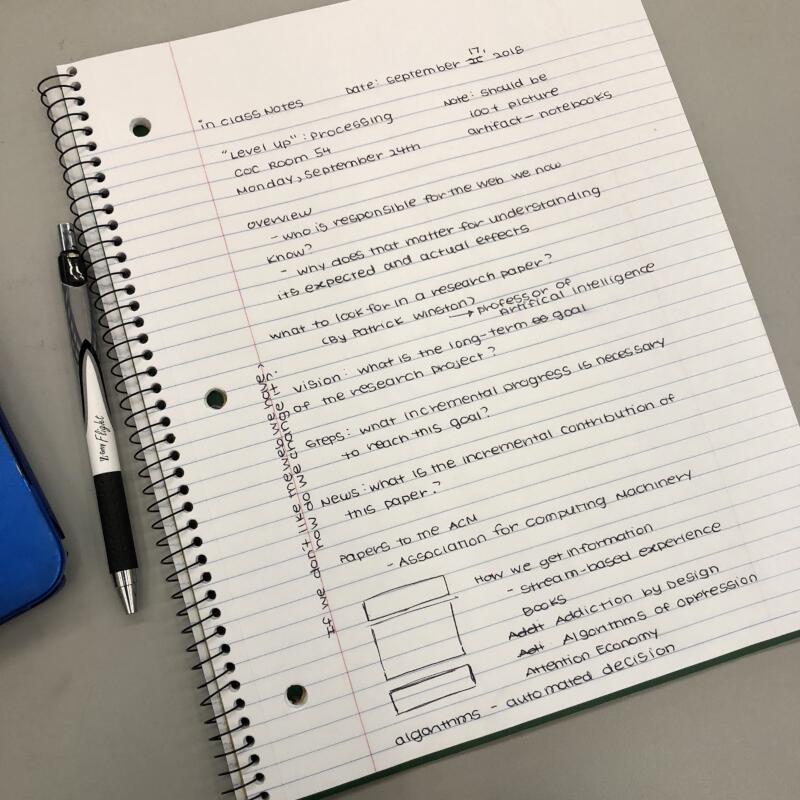 in class Notes
Date: September 17, 2018
"Level up": Processing
COC Room 54
Monday, September 24th
Note: Should be
100+ picture
artifact - notebooks
overview
- who is responsible for the web we now
know?
- why does that matter for understanding
its expected and actual effects
what to look for in a research paper?
(By Patrick Winston) → professor of
Artifical intelligence
vision: what is the long-term goal
of the research project?
Steps: what incremental progress is necessary
to reach this goal?
News: what is the incremental contribution of
this paper?
Papers to the ACM
- Association for computing Machinery
If we don't like the web we have,
how do we change it?
How we get information
- Stream-based experience
BOOKS
Addiction by Design
Algorithms of oppression
Attention Economy
algorithms - automated decision
Z-Grip Flight